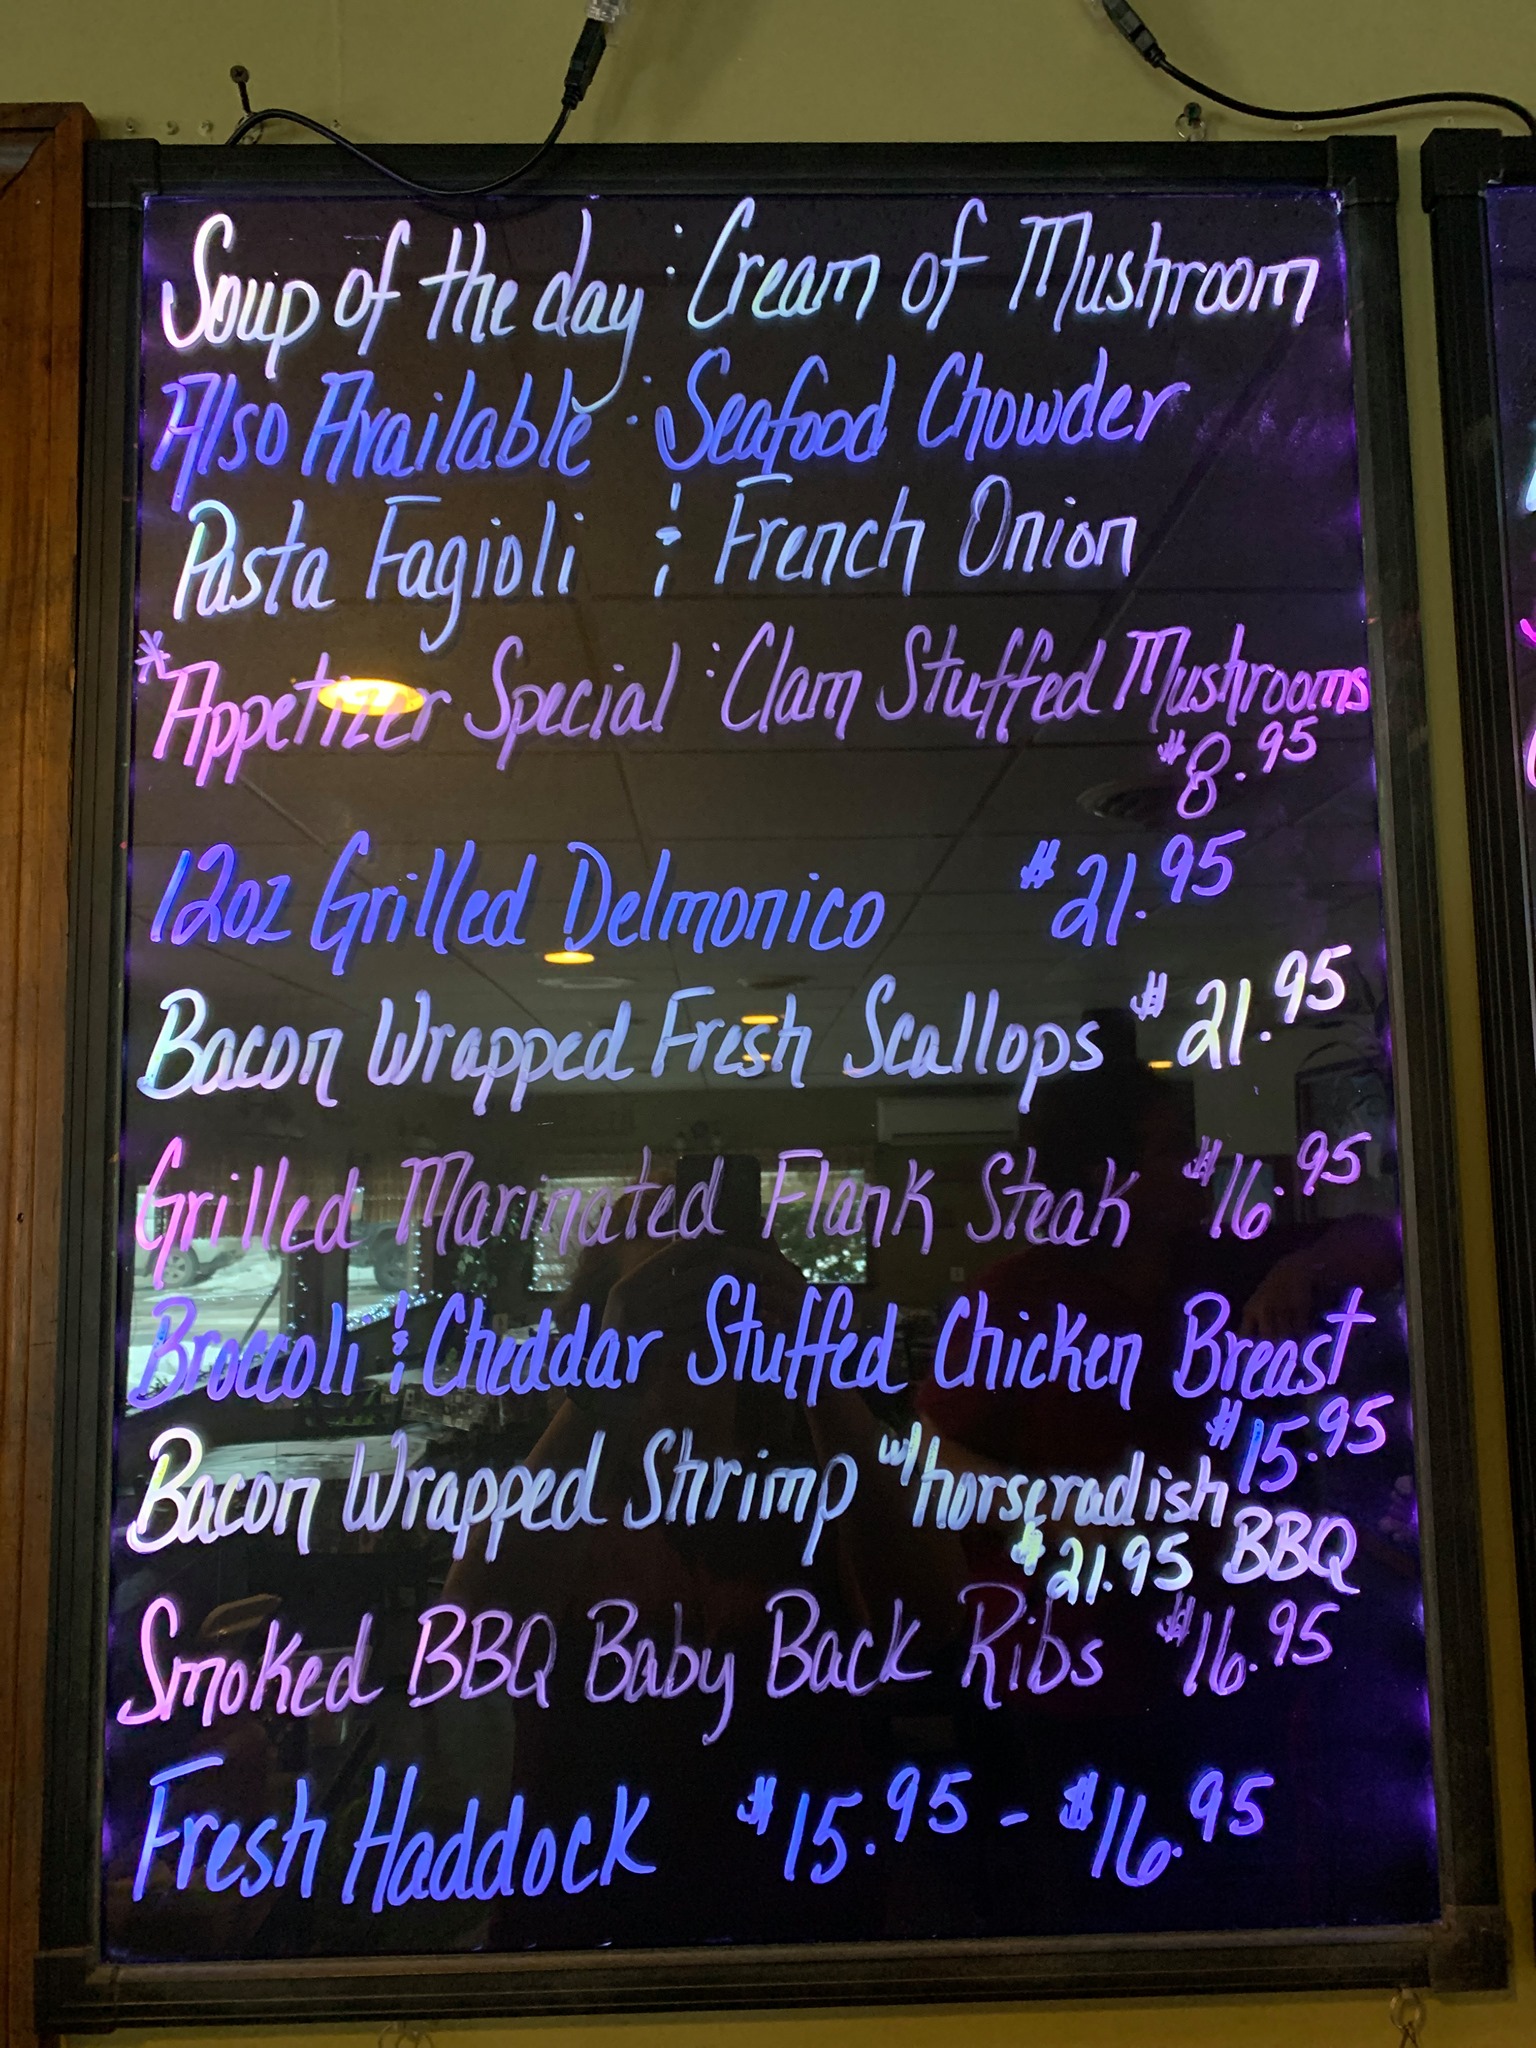 Soup of the day : Cream of Mushroom
Also Available : Seafood Chowder
Pasta Fagioli & French Onion
*Appetizer Special : Clam Stuffed Mushrooms
$8.95
12oz Grilled Delmonico $21.95
Bacon Wrapped Fresh Scallops $21.95
Grilled Marinated Flank Steak $16.95
Broccoli & Cheddar Stuffed Chicken Breast
$15.95
Bacon Wrapped Shrimp w/horseradish
$21.95 BBQ
Smoked BBQ Baby Back Ribs $16.95
Fresh Haddock $15.95 - $16.95